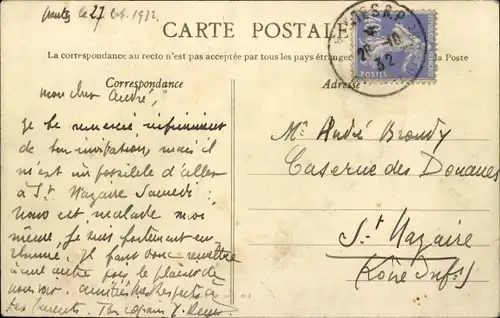 Nantes le 27 Oct. 1932.
CARTE POSTALE
La correspondance au recto n'est pas acceptée par tous les pays étrangers la Poste
NANTES R.P.
28-10
32
POSTES
Correspondance
Adresse
Mon cher André,
Je te remercie infiniment
de ton invitation mais il
m'est impossible d'aller
à St Nazaire Samedi :
malade moi
même, je suis fortement en-
rhumé. Il faut donc remettre
à une autre fois le plaisir de
nous voir. amitiés Respects à
tes parents. Ton copain
Mr André Broudy
Caserne des Douanes
St Nazaire
(Loire Infre)